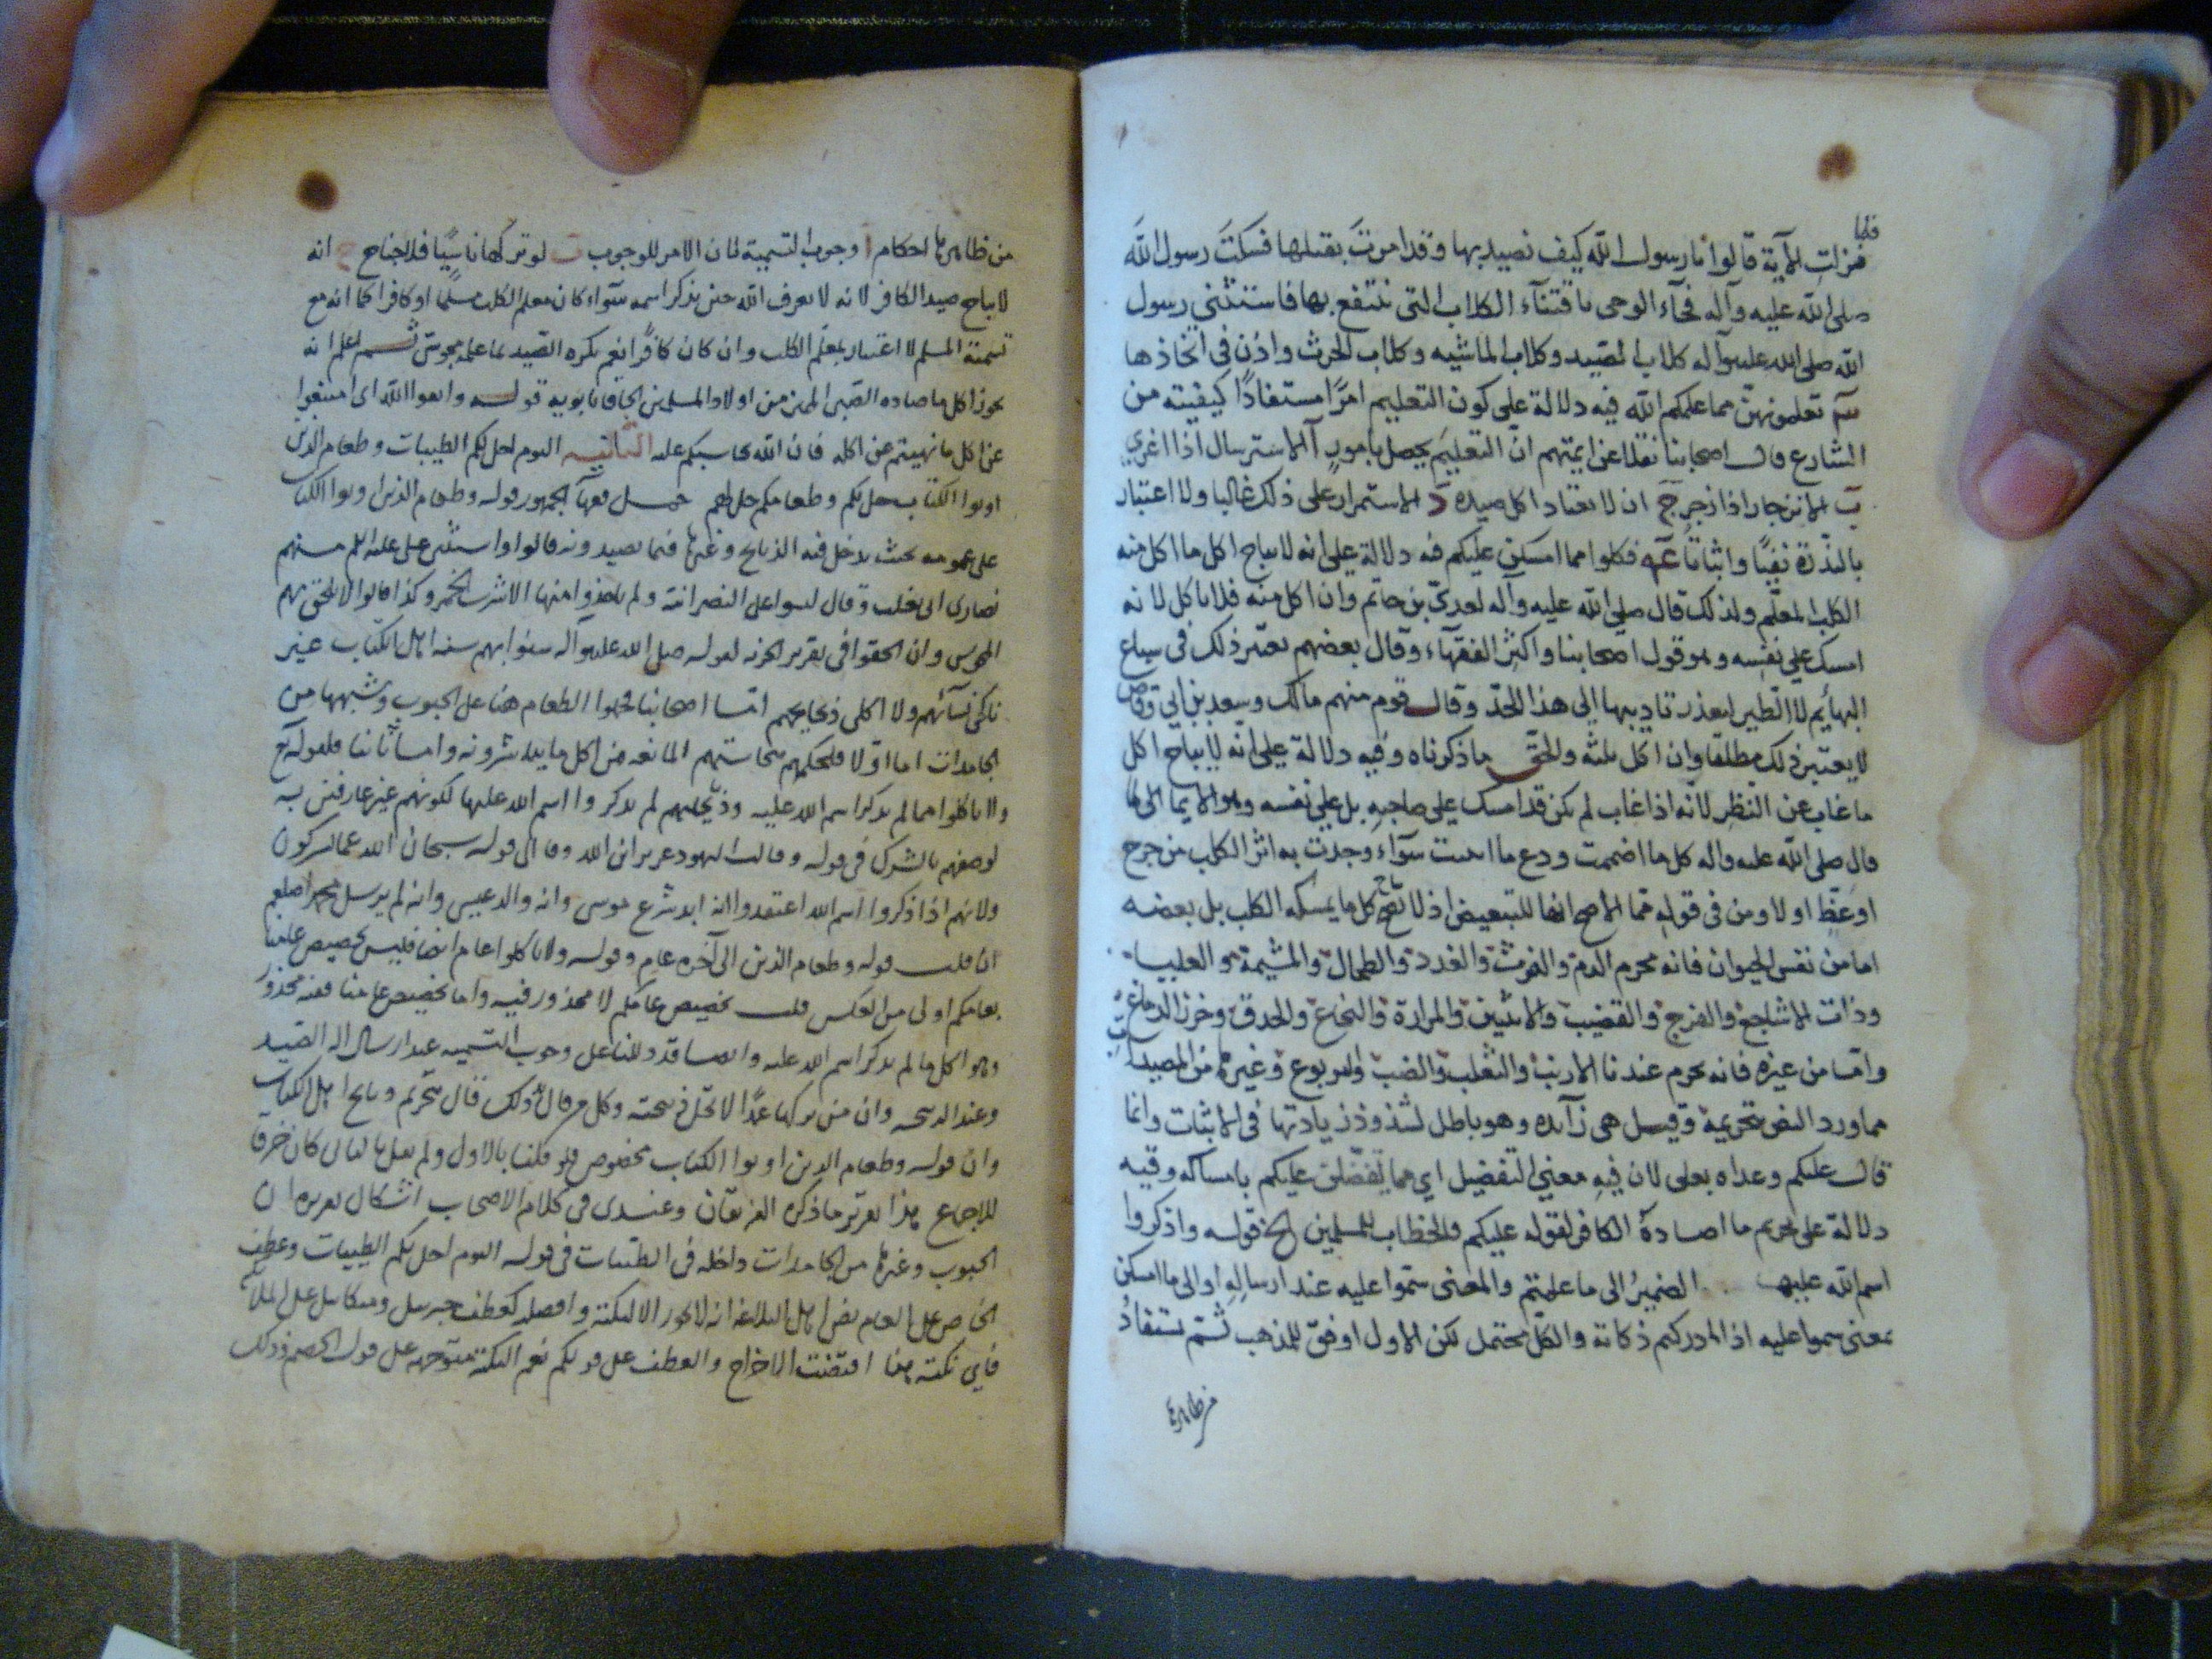 فلما
نزلت الآية قالوا يا رسول الله كيف نصيد بها وقد امرتَ بقتلها فسكتَ رسول الله
صلى الله عليه وآله فجآء الوحى باقتنآء الكلاب التى ننتفع بها فاستثنى رسول
الله صلى الله عليه وآله كلاب الصيد وكلاب الماشيه وكلاب الحرث واذن فى اتخاذها
تعلمونهن مما علمكم الله فيه دلالة على كون التعليم امرًا مستفادًا كيفيته من
الشارع قال اصحابنا نقلا عن ائمتهم انّ التعليم يحصل بامور آ الاسترسال اذا اغرى
ب الانزجار اذا زجر ج ان لا يعتاد اكل صيده د الاستمرار على ذلك غالبا ولا اعتبار
بالندرة نفيًا واثباتا فكلوا مما امسكن عليكم فيه دلالة على انه لا يباح اكل ما اكل منه
الكلب المعلّم ولذلك قال صلى الله عليه وآله لعدىّ بن حاتم وان اكل منه فلا تاكل لانه
امسك على نفسه وهو قول اصحابنا واكثر الفقهآء وقال بعضهم يعتبر ذلك فى سباع
البهائم لا الطير لتعذر تاديبها الى هذا الحدّ وقال قوم منهم مالك وسعد بن ابى وقاص
لا يعتبر ذلك مطلقا وان اكل ثلثه والحق ما ذكرناه وفيه دلالة على انه لا يباح اكل
ما غاب عن النظر لانّه اذا غاب لم يكن قد امسك على صاحبه بل على نفسه وهو الايما الى ما
قال صلى الله عليه واله كل ما اصميت ودع ما انميت سوآء وجدت به اثر الكلب من جرح
او عضّ او لا ومن فى قوله مما الاصح انها للتبعيض اذ لا يباح كل ما يمسكه الكلب بل بعضه
اما من نفس الحيوان فانه محرم الدم والفرث والغدد والطحال والمشيمة والعلبا
وذات الاشاجع والفرج والقضيب والانثيين والمرارة والنخاع والحدق وخرزة الدماغ
وامّا من غيره فانه يحرم عندنا الارنب والثعلب والضب واليربوع وغيرها من المصيدات
مما ورد النص بتحريمه وقيل هى زآئده وهو باطل لشذوذ زيادتها فى الاثبات وانما
قال عليكم وعداه بعلى لان فيه معنى التفضيل اي مما تفضّلن عليكم بامساكه وفيه
دلالة على تحريم ما اصادة الكافر لقوله عليكم والخطاب للمسلمين قوله واذكروا
اسم الله عليه الضميرُ الى ما علمتم والمعنى سموا عليه عند ارساله او الى ما امسكن
بمعنى سموا عليه اذا ادركتم ذكاتة والكلّ محتمل لكن الاول اوفق للمذهب ثم تستفادُ
من ظاهرها
من ظاهرها احكام آ وجوب التسمية لان الامر للوجوب ب لو تركها ناسيًا فلا جناح ج انه
لا يباح صيد الكافر لانه لا يعرف الله حتى يذكر اسمه سوآء كان معلم الكلب مسلمًا او كافرا كما انه مع
تسمية المسلم لا اعتبار بمعلّم الكلب وان كان كافرًا نعم يكره الصّيد بما علمه مجوسىّ ثم اعلم انه
يجوز اكل ما صاده الصّبى المميز من اولاد المسلمين الحاقا بابويه قوله واتقوا الله اى امتنعوا
عن اكل ما نهيتم عن اكله فان الله يحاسبكم عليه الثانيه اليوم احل لكم الطيبات وطعام الذين
اوتوا الكتاب حل لكم وطعامكم حل لهم حمل فقهآء الجمهور قوله وطعام الذين اوتوا الكتاب
على عمومه بحيث يدخل فيه الذبايح وغيرها فيما يصيدونه قالوا واستثنى على عليه السلم منهم
نصارى بنى تغلب وقال ليسوا على النصرانية ولم ياخذوا منها الا شرب الخمر وكذا قالوا لا يلحق بهم
المجوس وان الحقوا فى تقرير الجزيه لقوله صلى الله عليه وآله سنوا بهم سنة اهل الكتاب غير
ناكحى نسآئهم ولا اكلى ذبايحهم امّا اصحابنا فحملوا الطعام هنا على الحبوب وشبهها من
الجامدات اما اولا فلحكمهم بنجاستهم المانعه من اكل ما يباشرونه واما ثانيا فلقوله تع
ولا تاكلوا مما لم يذكر اسم الله عليه وذبايحهم لم يذكروا اسم الله عليها لكونهم غير عارفين به
لوصفهم بالشرك فى قوله وقالت اليهود عزير ابن الله وما الى قوله سبحان الله عما يشركون
ولانهم اذا ذكروا اسم الله اعتقدوا انه ابد شرع موسى وانه والد عيسى وانه لم يرسل محمدا صلعم
ان قلت قوله وطعام الذين الى آخره عام وقوله ولا تاكلوا عام ايضا فليس تخصيص عامنا
بعامكم اولى من العكس قلت تخصيص عامكم لا محذور فيه واما تخصيص عامنا ففيه محذور
وهو اكل ما لم يذكر اسم الله عليه وايضا قد دللنا على وجوب التسميه عند ارسال اله الصّيد
وعند الذبيحه وان متى تركها عمدًا لا تحل ذبيحته وكل من قال بذلك قال بتحريم ذبايح اهل الكتاب
وان قوله وطعام الذين اوتوا الكتاب مخصوص فلو قلنا بالاول ولم نقل بالثانى كان خرقا
للاجماع هذا تقرير ما ذكره الفريقان وعندى فى كلام الاصحاب اشكال تقريره ان
الحبوب وغيرها من الجامدات داخله فى الطيبات فى قوله اليوم احل لكم الطيبات وعطف
الخاص على العام نص اهل البلاغه انه لا يجوز الا لنكتة وافضله كعطف جبرئيل وميكائيل على الملآئكة
فاى نكته هنا اقتضت الاخراج والعطف على قولكم نعم النكتة متوجهه على قول الخصم وذلك